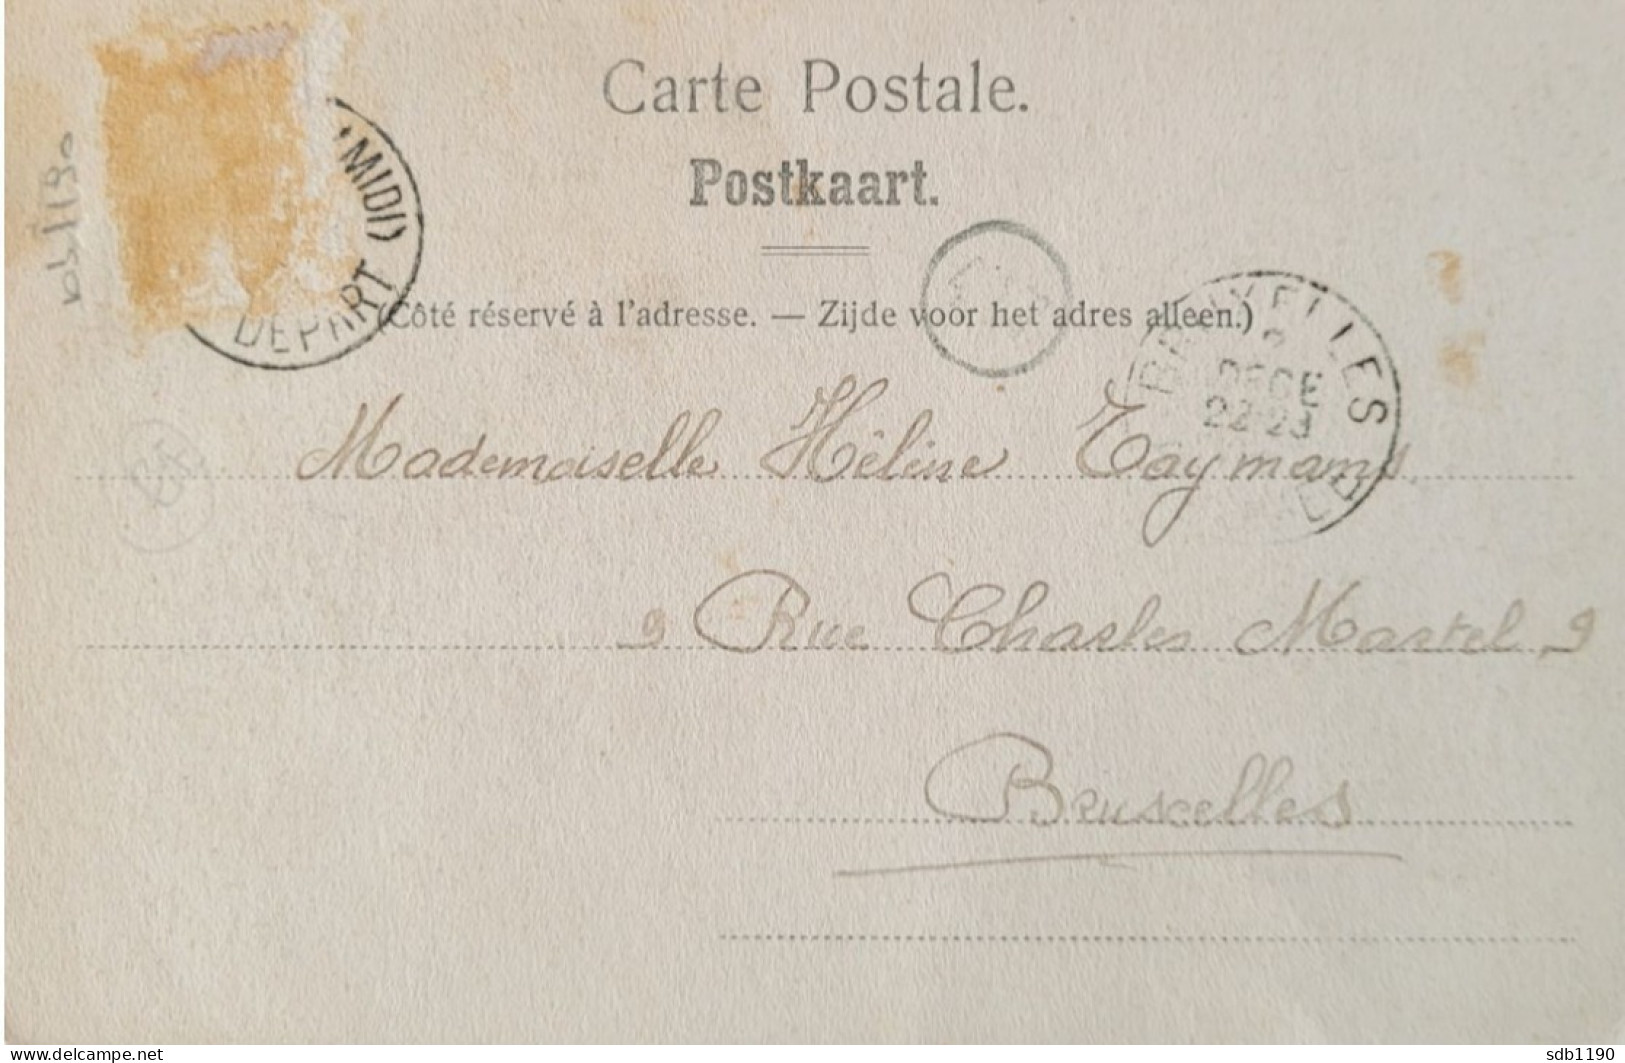 Carte Postale.
Postkaart.
(Côté réservé à l'adresse. — Zijde voor het adres alleen.)
(MIDI)
DEPART
BRUXELLES
DECE
22-23
Mademoiselle Hélène Taymans
9 Rue Charles Martel 9
Bruxelles
www.delcampe.net
sdb1190